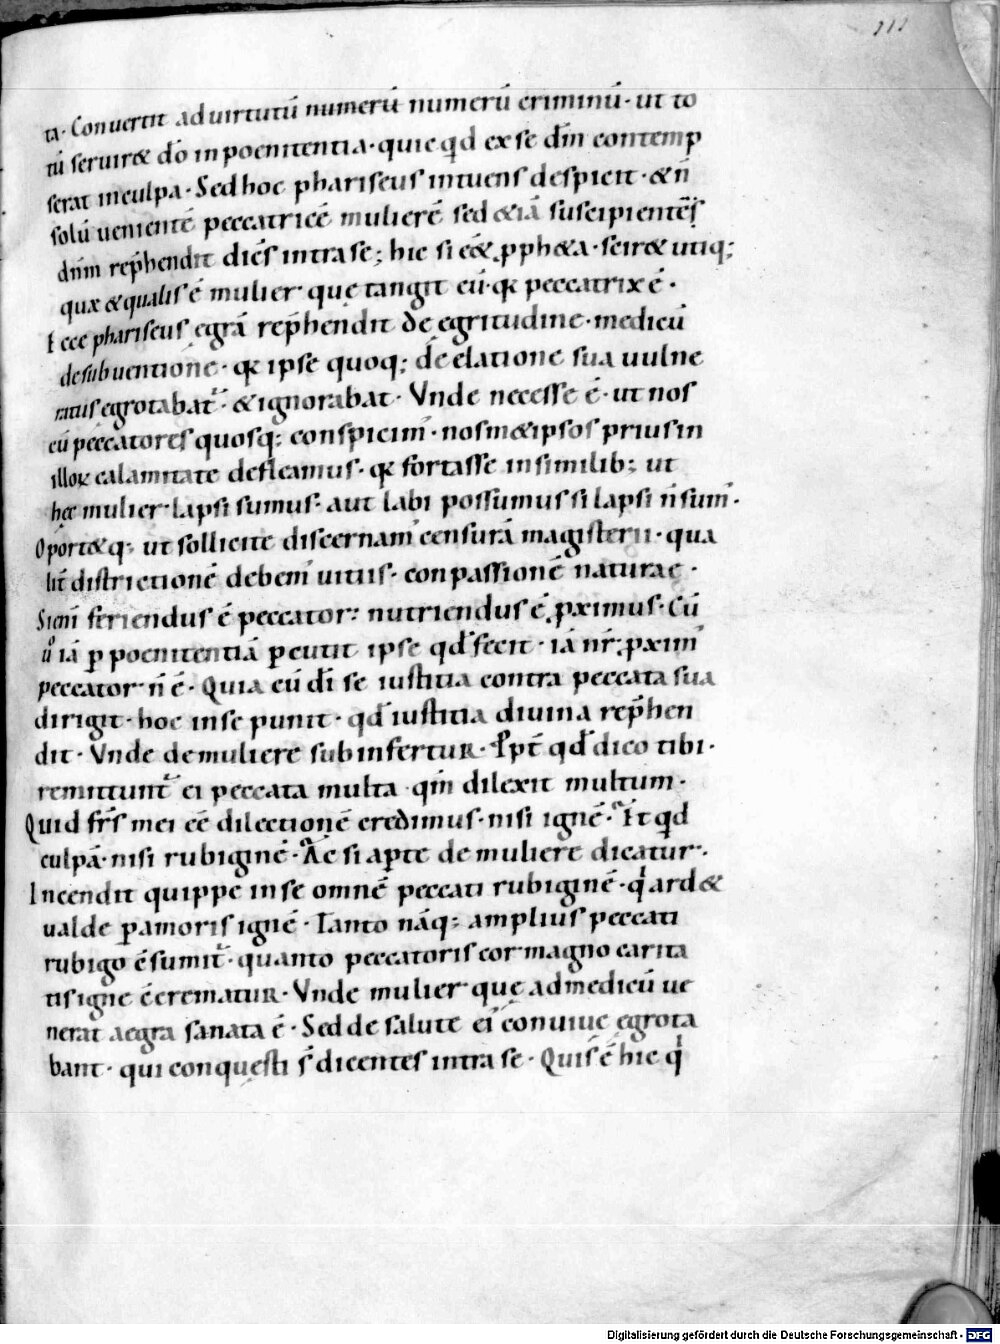 211
ta· Conuertit ad uirtutū numerū numerū criminū· ut to
tū seruir& dō in poenitentia· quic qd ex se dm̄ contemp
serat in culpa· Sed hoc phariseus intuens despicit· & n̄
solū uenientē peccatricē mulierē sed &iā suscipientē
dn̄m rep̄hendit diēs intra se; hic si eē& ꝓph&a· scir& utiq;
quę & qualis ē mulier quę tangit eū· qꝛ peccatrix ē·
Ecce phariseus ęgrā rep̄hendit de ęgritudine· medicū
de subuentione· qꝛ ipse quoq; de elatione sua uulne
ratus egrotabat̄· & ignorabat· Vnde necesse ē· ut nos
cū peccatores quosq; conspicim̄· nosm&ipsos prius in
illoꝝ calamitate defleamus· qꝛ fortasse in similib; ut
hęc mulier lapsi sumus· aut labi possumus si lapsi n̄ sum̄·
Oport& q; ut sollicite discernam̄ censurā magisterii· qua
lit̄ districtionē debem̄ uitiis· conpassionē naturae·
Si eni̅ feriendus ē peccator· nutriendus ē ꝓximus· Cū
uͦ iā ꝑ poenitentiā ꝑcutit ipse qd fecit· iā nr̄ ꝓxim̄
peccator n̄ ē· Quia cū dī se iustitia contra peccata sua
dirigit· hoc in se punit· qd iustitia diuina rep̄hen
dit· Vnde de muliere subinfertur· Ppt̄ qd dico tibi·
remittunt̄ ei peccata multa qm̄ dilexit multum·
Quid frs̄ mei eē dilectionē credimus· nisi ignē· Et qd
culpā· nisi rubiginē· Ac si aꝑte de muliere dicatur·
Incendit quippe in se omnē peccati rubiginē· qꝛ ard&
ualde ꝑ amoris ignē· Tanto nāq; amplius peccati
rubigo c̄sumit̄· quanto peccatoris cor magno carita
tis igne c̄crematur· Vnde mulier quę ad medicū ue
nerat aegra sanata ē· Sed de salute ei conuiuę ęgrota
bant· qui conquesti s̄ dicentes intra se· Quis ē hic q̇
Digitalisierung gefördert durch die Deutsche Forschungsgemeinschaft - DFG